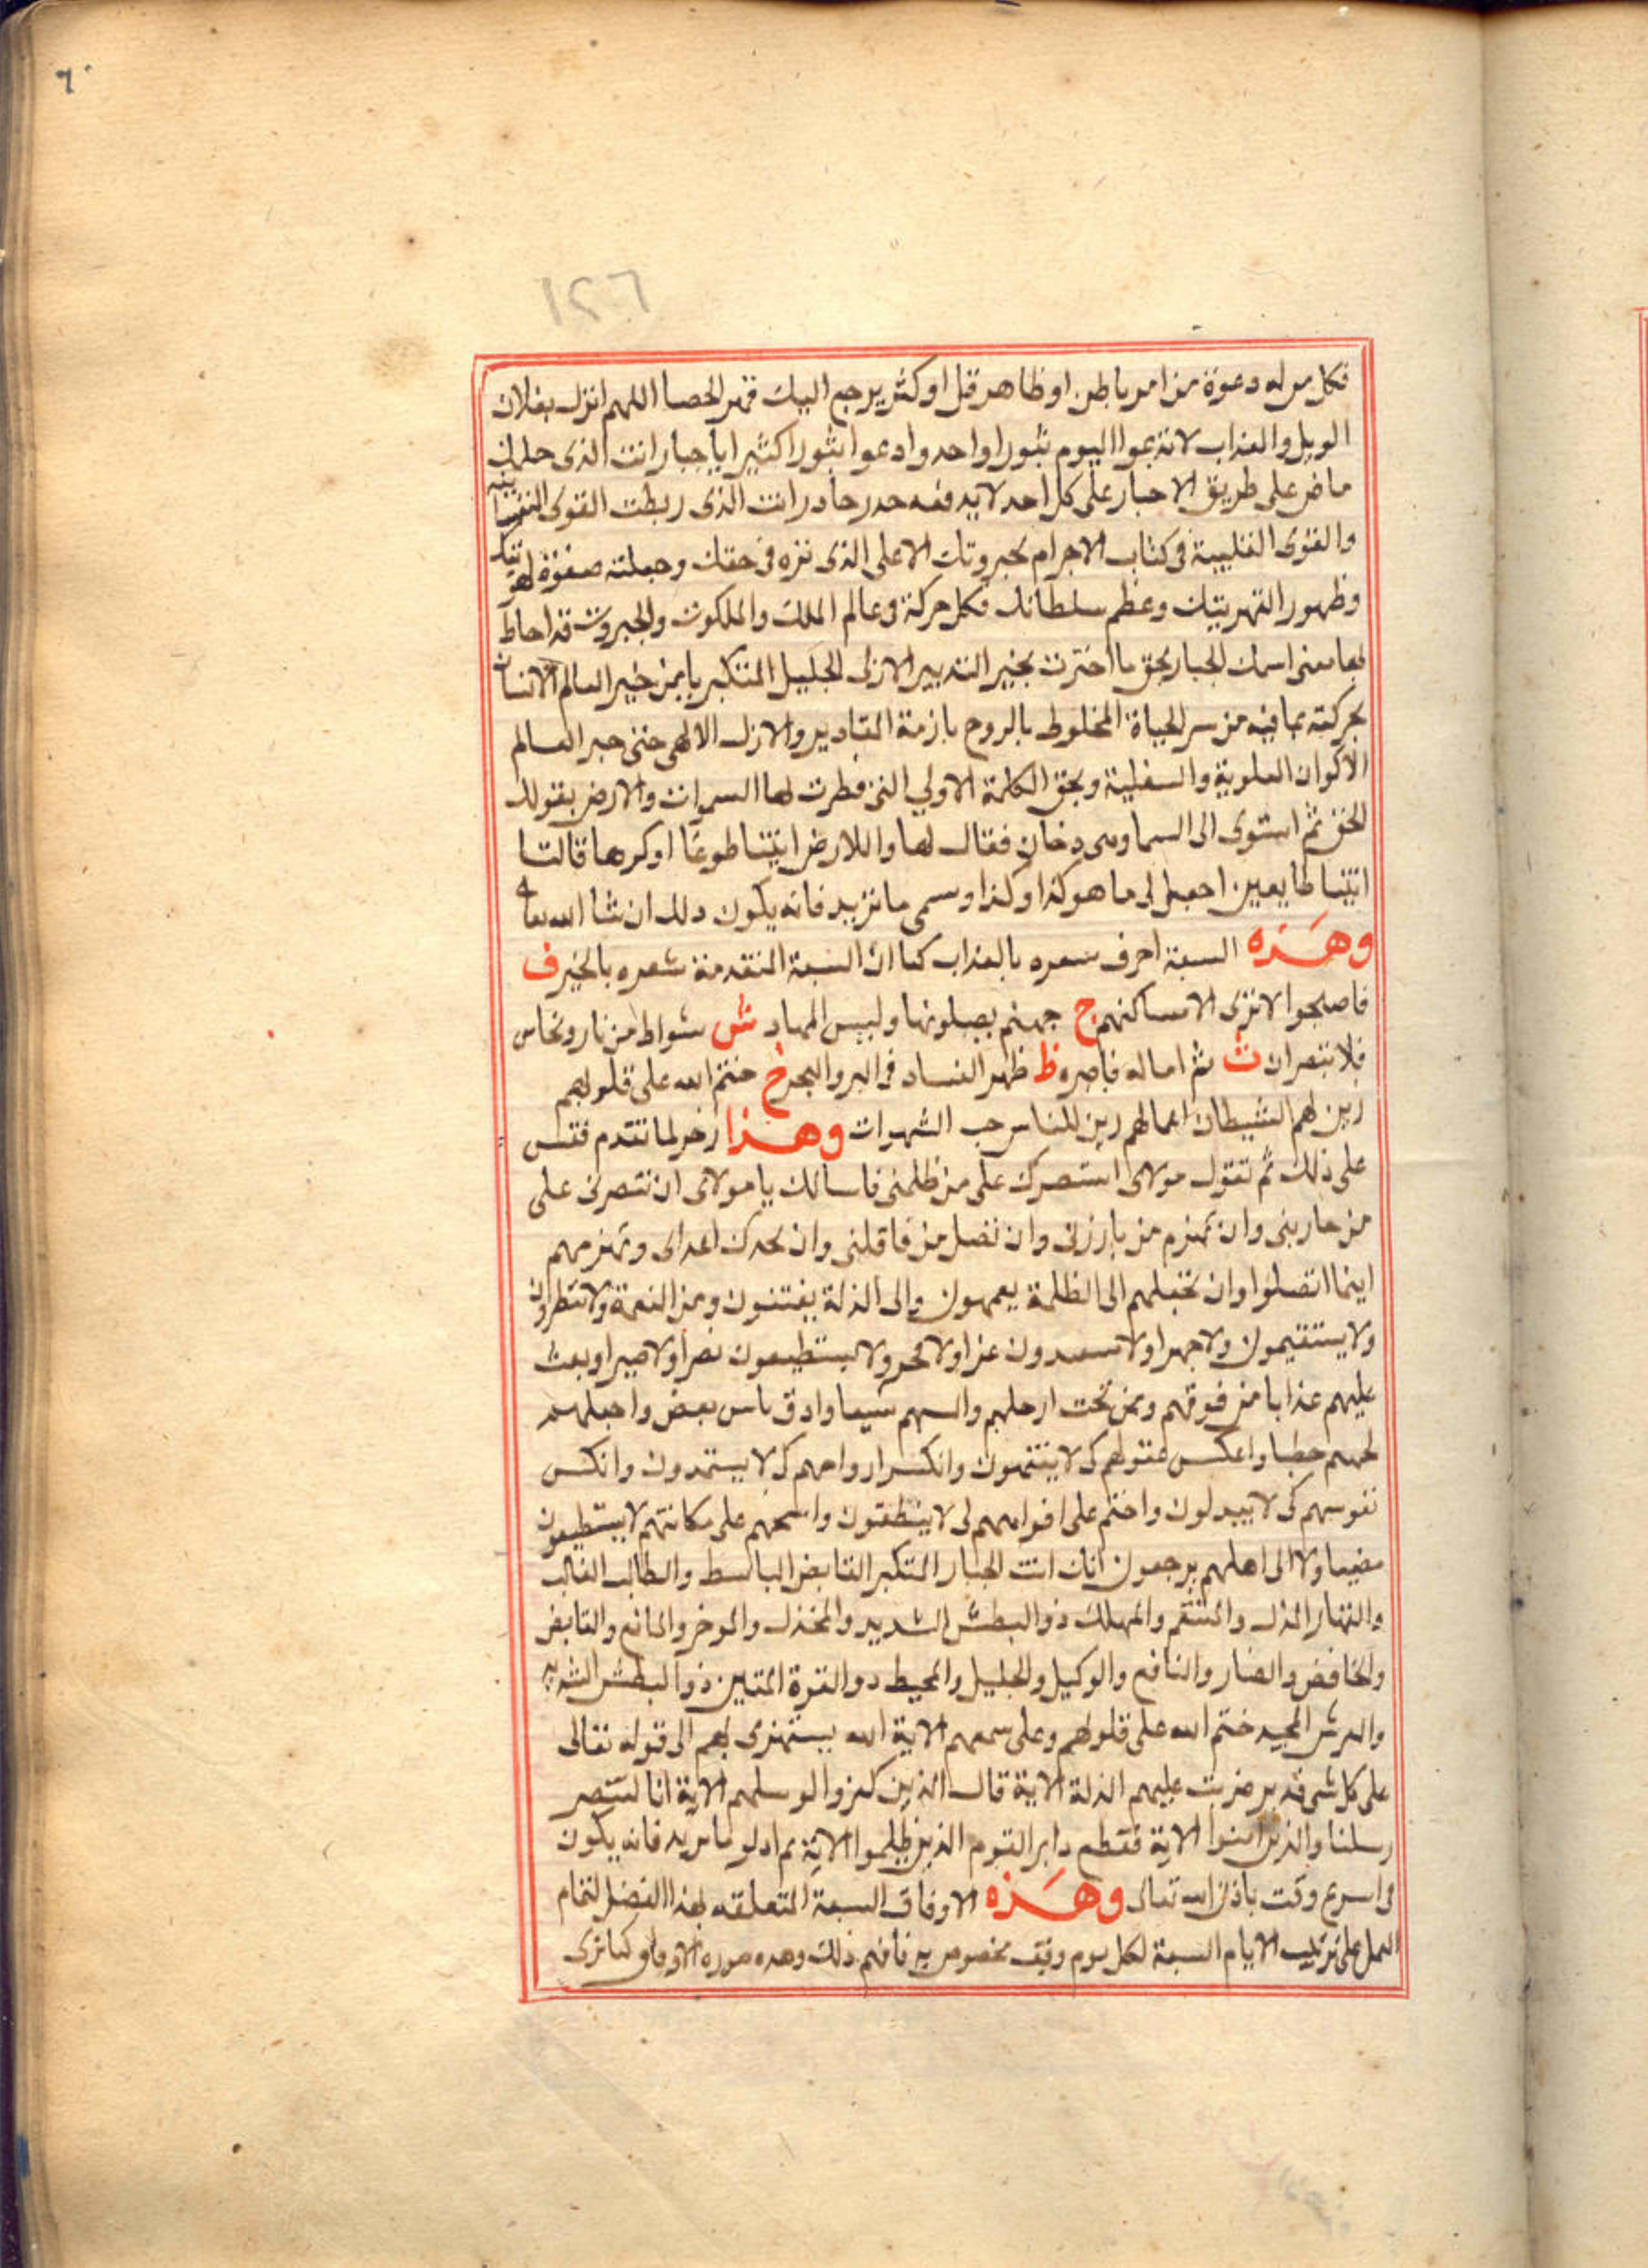 ٦٠
١٢٠٦
فكل من له دعوة من امر باطن او ظاهر قل او كثر يرجع اليك قهر الحصا اللهم انزل بفلان
الويل والعذاب لا تدعوا اليوم ثبورا واحد وادعوا ثبورا كثيرا يا جبار انت الذى
ماض على طريق الاجبار على كل احد لا يدفعه حدر حادر انت الذى ربطت القوى النفسانيه
والقوى القلبية فى كتاب الاجرام بجبروتك الاعلى الذى نزه فى حقك وجعلته صفوة
وظهور القهريتك وعظم سلطانك فكل حركة فى عالم الملك والملكوت والجبروت قد احاط
بها معنى اسمك الجبار بحق ما اخترت بخير التدبير الازلى الجليل المتكبر يا من خير العالم الانسان
بحركته بما فيه من سر الحياة المخلوط بالروح بازمة المقادير والازل الالهى حتى جبر العالم
الاكوان العلوية والسفلية وبحق الكلمة الاولى التى فطرت لها السموات والارض بقولك
الحق ثم استوى الى السما وهى دخان فقال لها وللارض ايتيا طوعا او كرها قالتا
اتينا طايعين اجعل لى ما هو كذا وكذا وسمى ما تريد فانه يكون ذلك ان شا الله تعا
وهذه السبعة احرف سعره بالعذاب كما ان السبعة المتقدمة شعره بالخير ف
فاصبحوا لا ترى الا مساكنهم ج جهنم يصلونها ولبيس المهاد ش شواظ من نار ونحاس
فلا تنتصران ث ثم اماته فاقبره ظ ظهر الفساد فى البر والبحر خ ختم الله على قلوبهم
زين لهم الشيطان اعمالهم زين للناس حب الشهوات وهذا زجر لما تقدم فقس
على ذلك ثم تقول مولاى استنصرك على من ظلمنى فاسالك يا مولاى ان تنصرنى على
من حاربنى وان تهزم من بارزنى وان تفضل من قاتلنى وان اعداى وتهزمهم
اينما اتصلوا وان الى الظلمة يعمهون والى الذلة يفتنون ومن النعمة ولا
ولا يستقيمون ولا جهرا ولا عزا ولا ولا يستطيعون نصرا ولا صبرا وبعث
عليهم عذابا من فوقهم ومن تحت ارجلهم والبسهم شيعا واذق باس بعض واجعلهم
لجهنم حطبا واعكس عقولهم كى لا يفقهون وانكس ارواحهم كى لا يستمدون وانكس
نفوسهم كى لا يبدلون واختم على افواههم لى لا ينطقون وامسخهم على مكانتهم لا يستطيعون
مضيا ولا الى اهلهم يرجعون انك انت الجبار المتكبر القابض الباسط والطالب الغالب
والقهار المذل والمنتقم والمهلك ذو البطش الشديد والمخذل والموخر والمانع والقابض
والخافض والضار والنافع والوكيل والجليل والمحيط ذو القوة المتين ذو البطش الشديد
والعرش المجيد ختم الله على قلوبهم وعلى سمعهم الاية الله يستهزى بهم الى قوله تعالى
على كل شى قدير ضربت عليهم الذلة الاية قال الذين كفروا لرسلهم الاية انا لننصر
رسلنا والذين امنوا الاية فقطع دابر القوم الذين ظلموا الاية ثم ادعو بما تريد فانه يكون
فى اسرع وقت باذن الله تعالى وهذه الاوفاق السبعة المتعلقه بهذا الفصل لتمام
العمل على ترتيب الايام السبعة لكل يوم وفق مخصوص به فافهم ذلك وهده صوره الاوفاق كما ترى